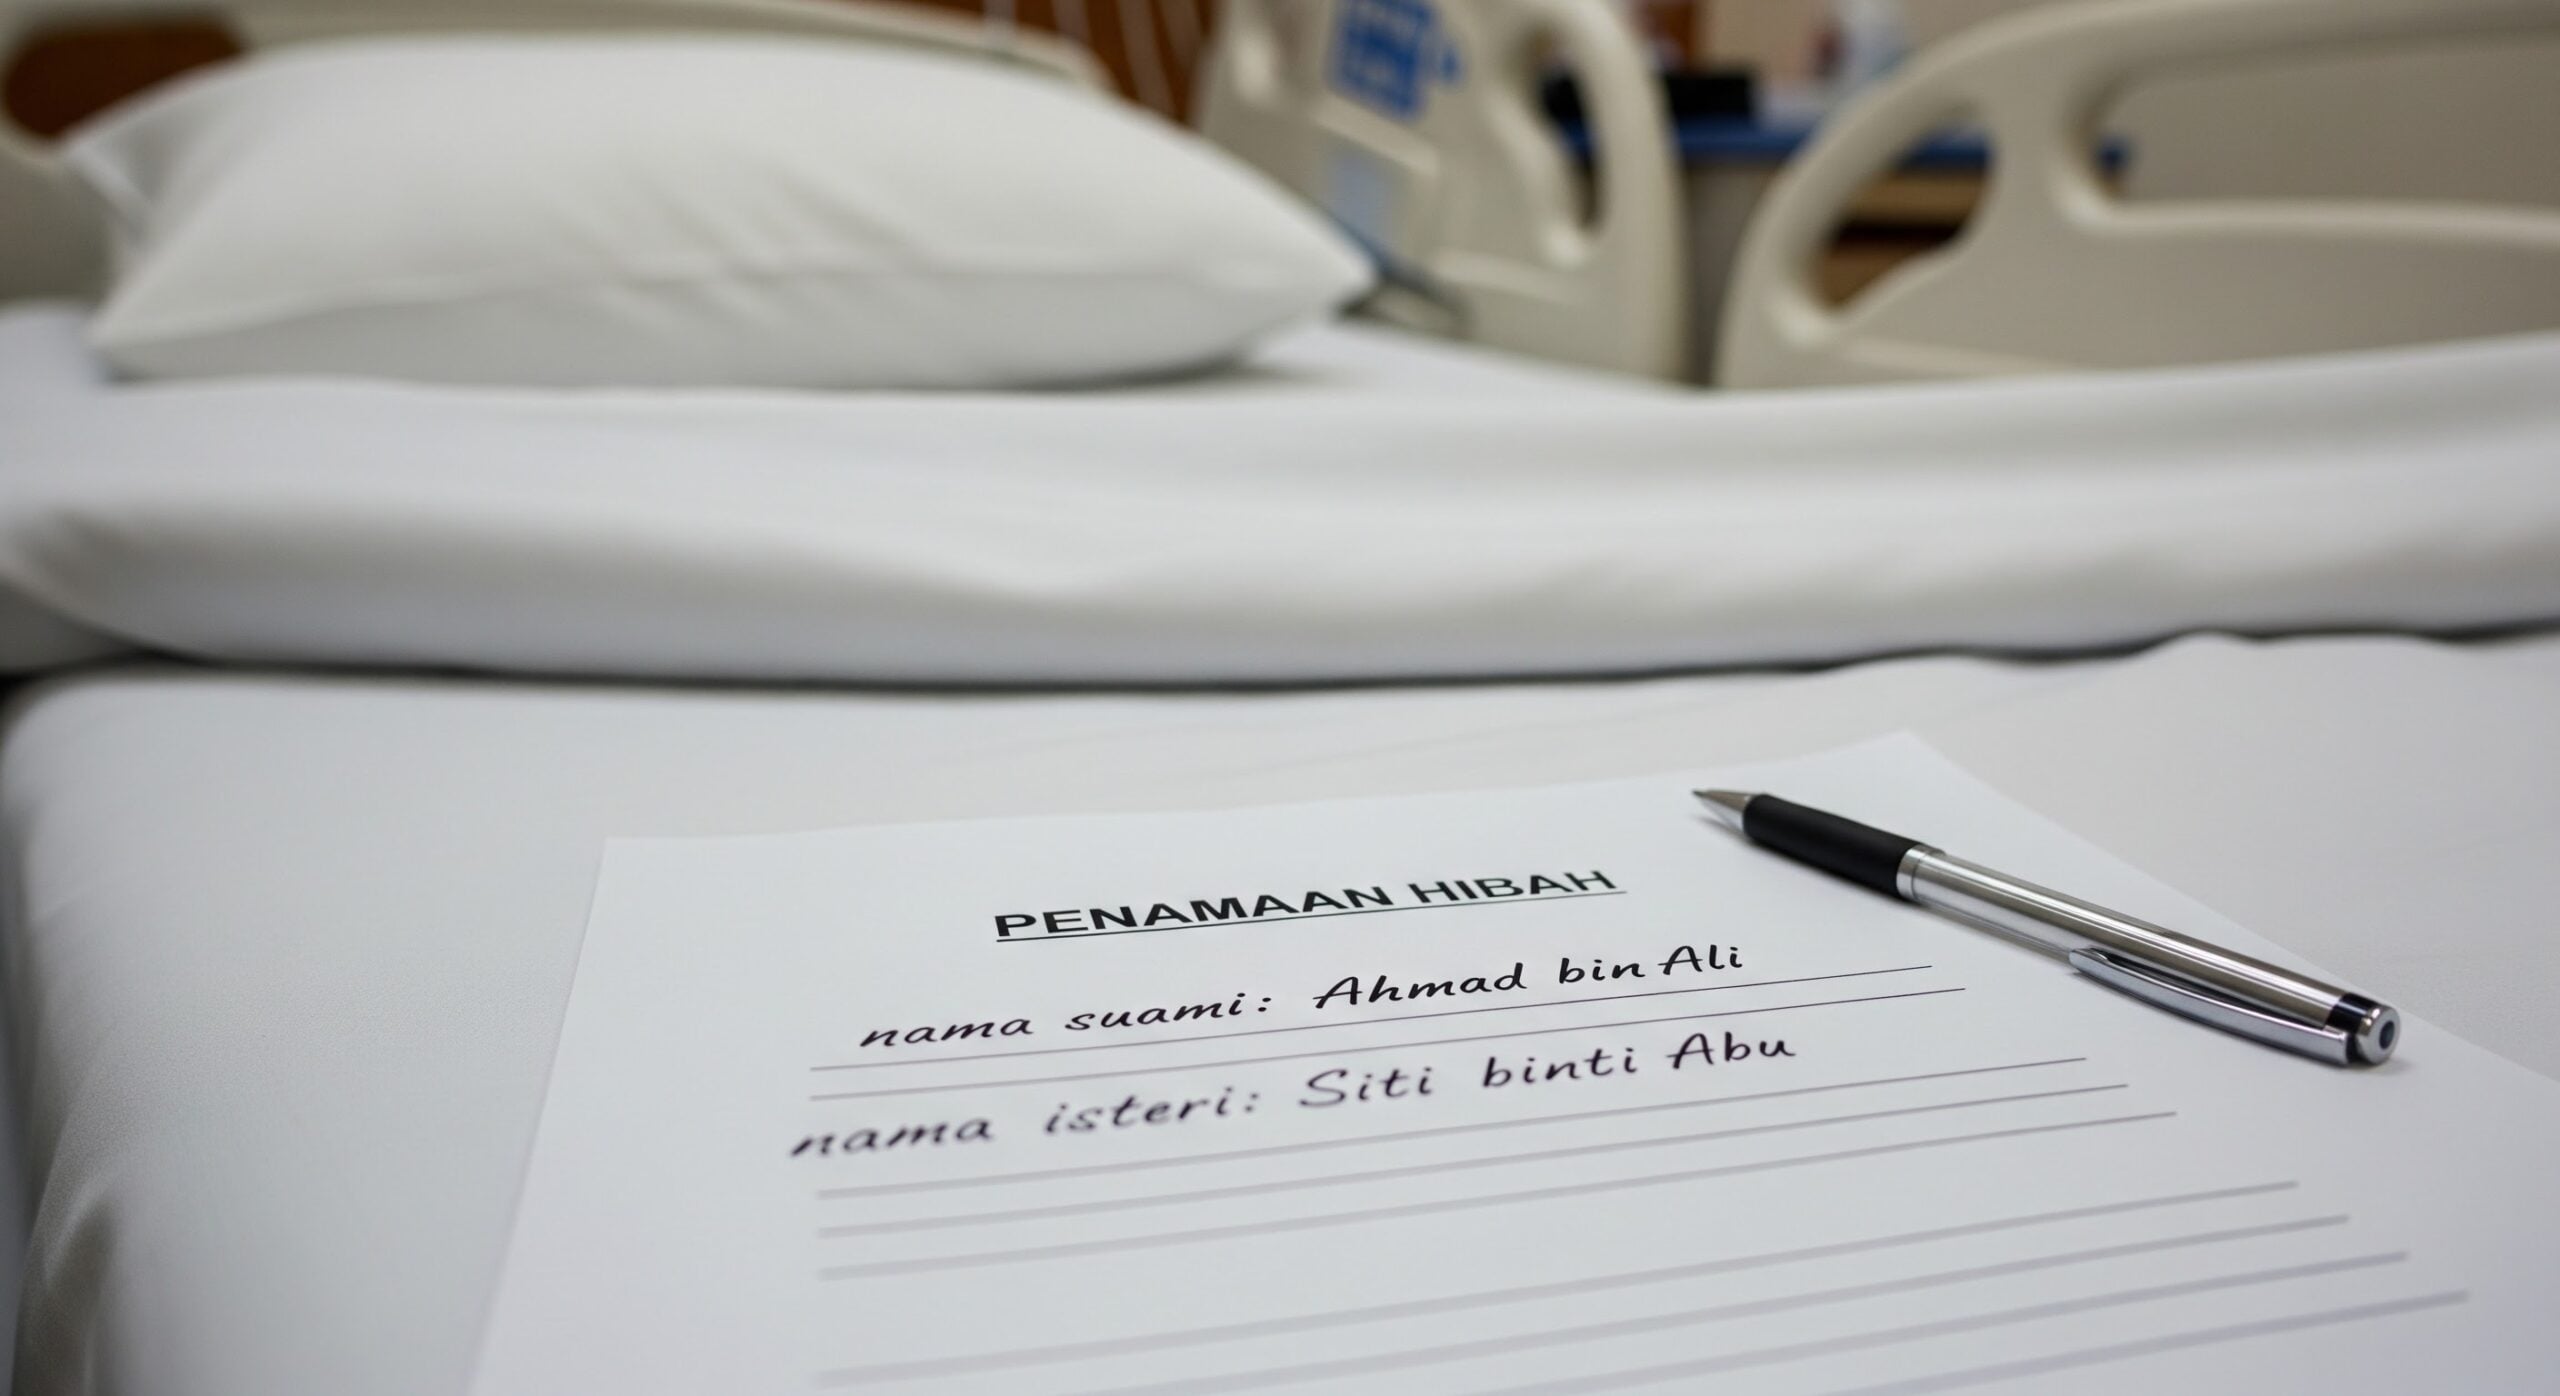 PENAMAAN HIBAH
nama suami: Ahmad bin Ali
nama isteri: Siti binti Abu